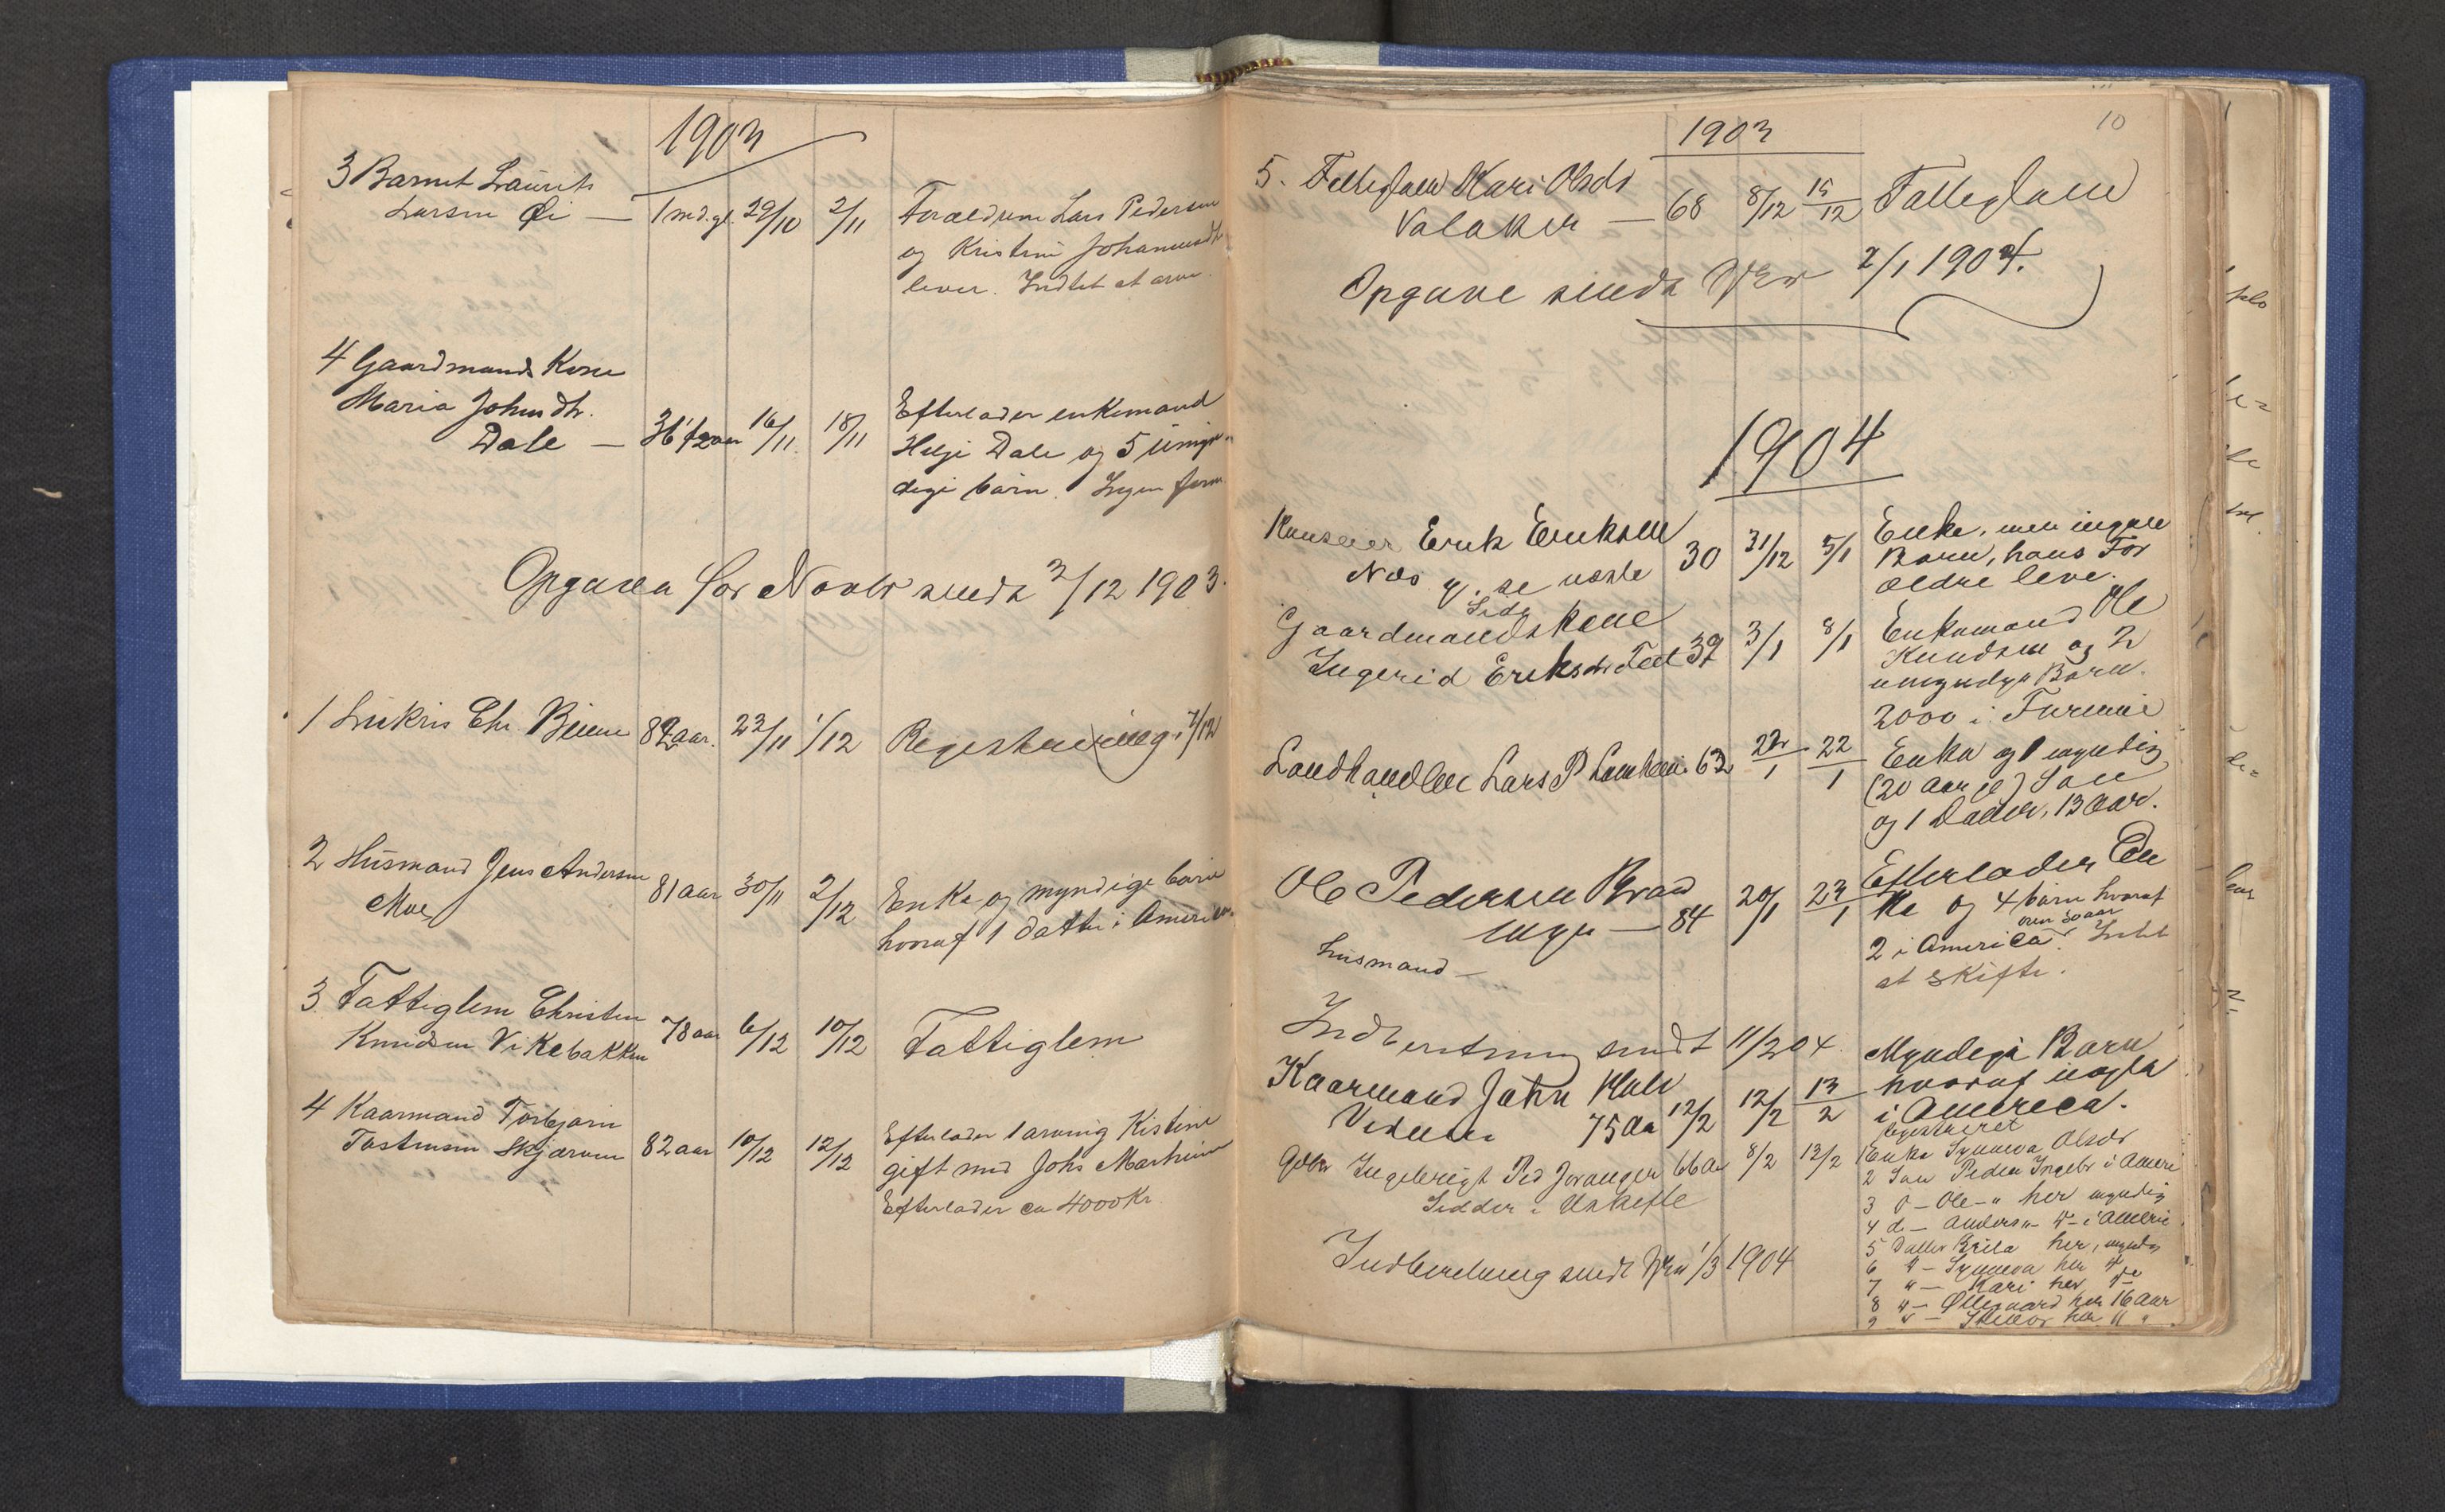 1903
3 Barnet Laurits
Larsen Øi — 1 md. gl. 29/10 2/11 Forældrene Lars Pedersen
og Kristine Johannesdtr
lever. Indtet at arve.
4 Gaardmands Kone
Maria Johnsdtr.
Dale — 36 1/2 aar 16/11 18/11 Efterlader enkemand
Helje Dale og 5 umyn-
dige børn. Ingen
Opgave for Novbr sendt 3/12 1903.
1 Chr. 82 aar. 23/11 1/12 Registrering 7/12
2 Husmand Jens Andersen
Moe 81 aar 30/11 2/12 Enke og myndige børn
hvoraf 1 datter i Amerika.
3 Fattiglem Christen
Knudsen Vikebakken 78 aar 6/12 10/12 Fattiglem
4 Kaarmand Torbjørn
Tostensen Skjærven 82 aar 10/12 12/12 Efterlader 1 arving Kistine
gift med Johs Martinsen
Efterlader ca 4000 Kr
10
1903
5. Fattiglem Kari Olsdr
Valaker — 68 8/12 15/12 Fattiglem
Opgave sendt 2/1 1904.
1904
Huuseier Erik Eriksen
Næs 30 31/12 5/1 Enke, men ingen
Børn, hans For
ældre leve.
q. se næste
Side
Gaardmandskone
Ingerid Eriksdr 39 3/1 8/1 Enkemand Ole
Knudsen og 2
umyndige Børn.
2000 i Formue
Landhandler Lars P 63 22/1 Enke og 1 myndig
(20 Aar gl) Søn
og 1 Datter, 13 Aar.
Ole Pedersen
— 84 20/1 23/1 Efterlader En
ke og 4 børn hvoraf
over 30 aar
2 i America. Intet
at skifte.
Husmand —
Indberetning sendt 11/2 04.
Kaarmand John
75 Aa 12/2 12/2 13/2 Myndige Børn
hvoraf nogle
i America.
registreret
Gdbr Ingebrigt Ped Joranger 66 Aa 8/2 12/2 1 Enke Synneva Olsdr
Sidder i Uskifte
2 Søn Peder Ingebr i Ameri
3 d — Ole — " her myndig
4 d — Anders " — i Amerie
5 Datter Brita her, myndig
6 " — Synneva her
7 " — Kari her
8 " — Øllegaard her 16 Aar
9 " — her 11 "
Indberetning sendt 1/3 1904